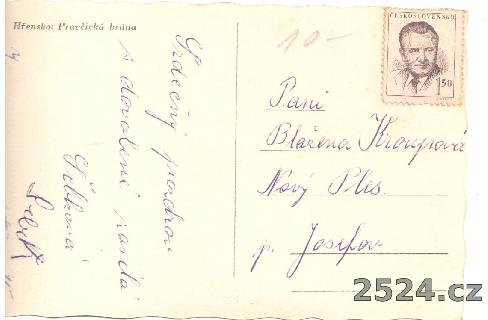 Hřensko: Pravčická brána
Srdečný pozdrav
s dovolené posílá
10-
ČESKOSLOVENSKO
1.50
Paní
Blažena Kroupová
Nový Ples.
p. Josefov
2524.cz